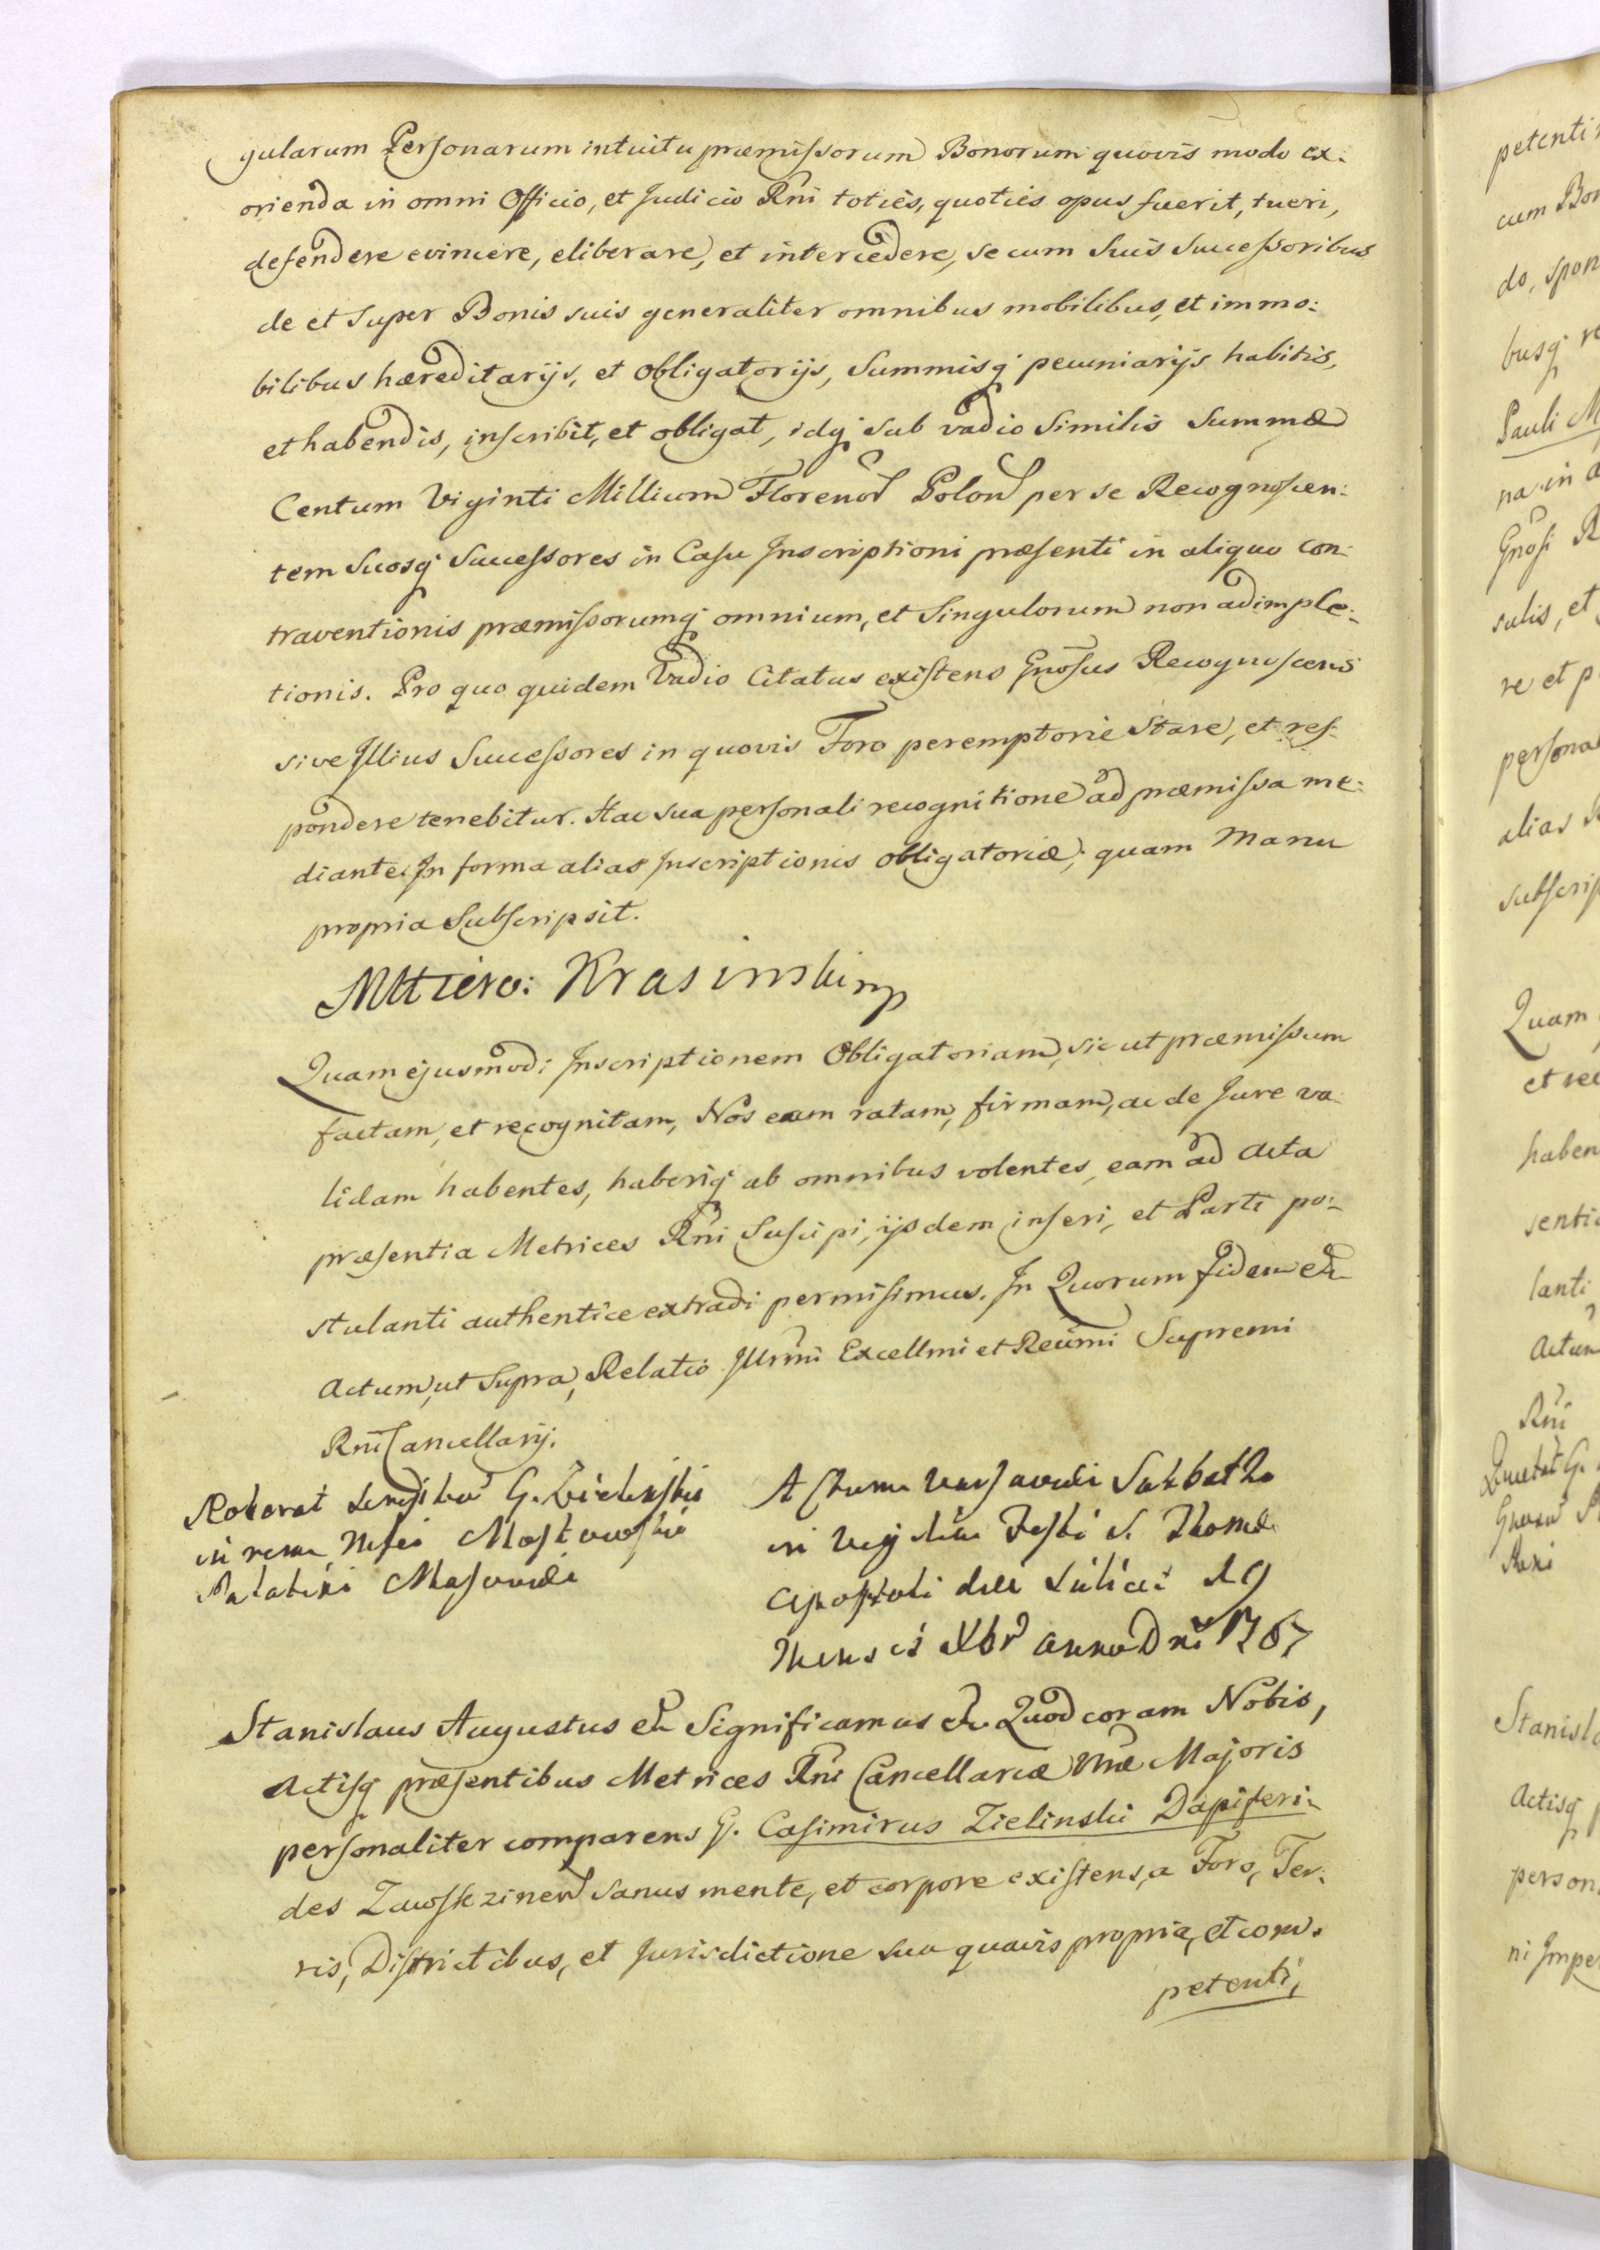 gularum Personarum intuitu præmissorum Bonorum quovis modo ex:
orienda in omni Officio, et Judicio Rni toties, quoties opus fuerit, tueri,
defendere evincere, eliberare, et intercedere, se cum suis Successoribus
de et super Bonis suis generaliter omnibus mobilibus, et immo:
bilibus hæreditarijs, et obligatorijs, Summisq pecuniarijs habitis,
et habendis, inscribit, et obligat, idq sub vadio similis Summæ
Centum Viginti Millium Florenor Polon per se Recognoscen:
tem Suosq Successores in Casu Inscriptioni præsenti in aliquo con:
traventionis præmissorumq omnium, et Singulorum non adimple:
tionis. Pro quo quidem Vadio Citatus existens Gnosus Recognoscens
sive Illius Successores in quovis Foro peremptorie Stare, et res:
pondere tenebitur. Hac sua personali recognitione ad præmissa me:
diante In forma alias Inscriptionis obligatoriæ, quam Manu
propria Subscripsit.
Krasinski mp
Quam ejusmodi Inscriptionem Obligatoriam, sic ut præmissum
factam, et recognitam, Nos eam ratam, firmam, ac de Jure va:
lidam habentes, haberiq ab omnibus volentes, eam ad Acta
præsentia Metrices Rni Suscipi, ijsdem inseri, et Parti po:
stulanti authentice extradi permisimus. In Quorum fidem etc
Actum, ut Supra, Relatio Illrmi Excellmi et Reumi Supremi
Rni Cancellarij.
Roborat G. Zielinski
in rem Mostowski
Palatini Masoviæ
Actum Varsaviæ Sabbatho
in Vigilia Festi S. Thomæ
Apostoli die 19
Mensis Xbr anno Dni 1767
Stanislaus Augustus etc Significamus etc Quod coram Nobis,
Actisq præsentibus Metrices Rni Cancellariæ Majoris
personaliter comparens G. Casimirus Zielinski Dapiferi:
des Zawskrzinen sanus mente, et corpore existens, a Foro, Ter:
ris, Districtibus, et Jurisdictione sua quavis propria, et com:
petenti,